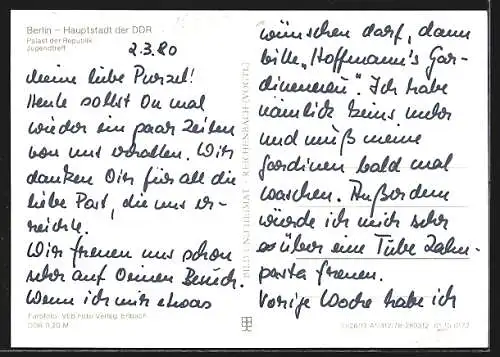 Berlin – Hauptstadt der DDR
Palast der Republik
Jugendtreff
2.3.80
Meine liebe Purzel!
Heute sollst Du mal
wieder ein paar Zeilen
von uns erhalten. Wir
danken Dir für all die
liebe Post, die uns er-
reichte.
Wir freuen uns schon
sehr auf Deinen Besuch.
Wenn ich mir etwas
Eurofoto: VEB Foto-Verlag Erlbach
DDR 0,20 M
BILD UND HEIMAT REICHENBACH (VOGTL)
wünschen darf, dann
bitte „Hoffmann's Gar-
dinenneu“. Ich habe
nämlich keins mehr
und muß meine
Gardinen bald mal
waschen. Außerdem
würde ich mich sehr
über eine Tube Zahn-
pasta freuen.
Vorige Woche habe ich